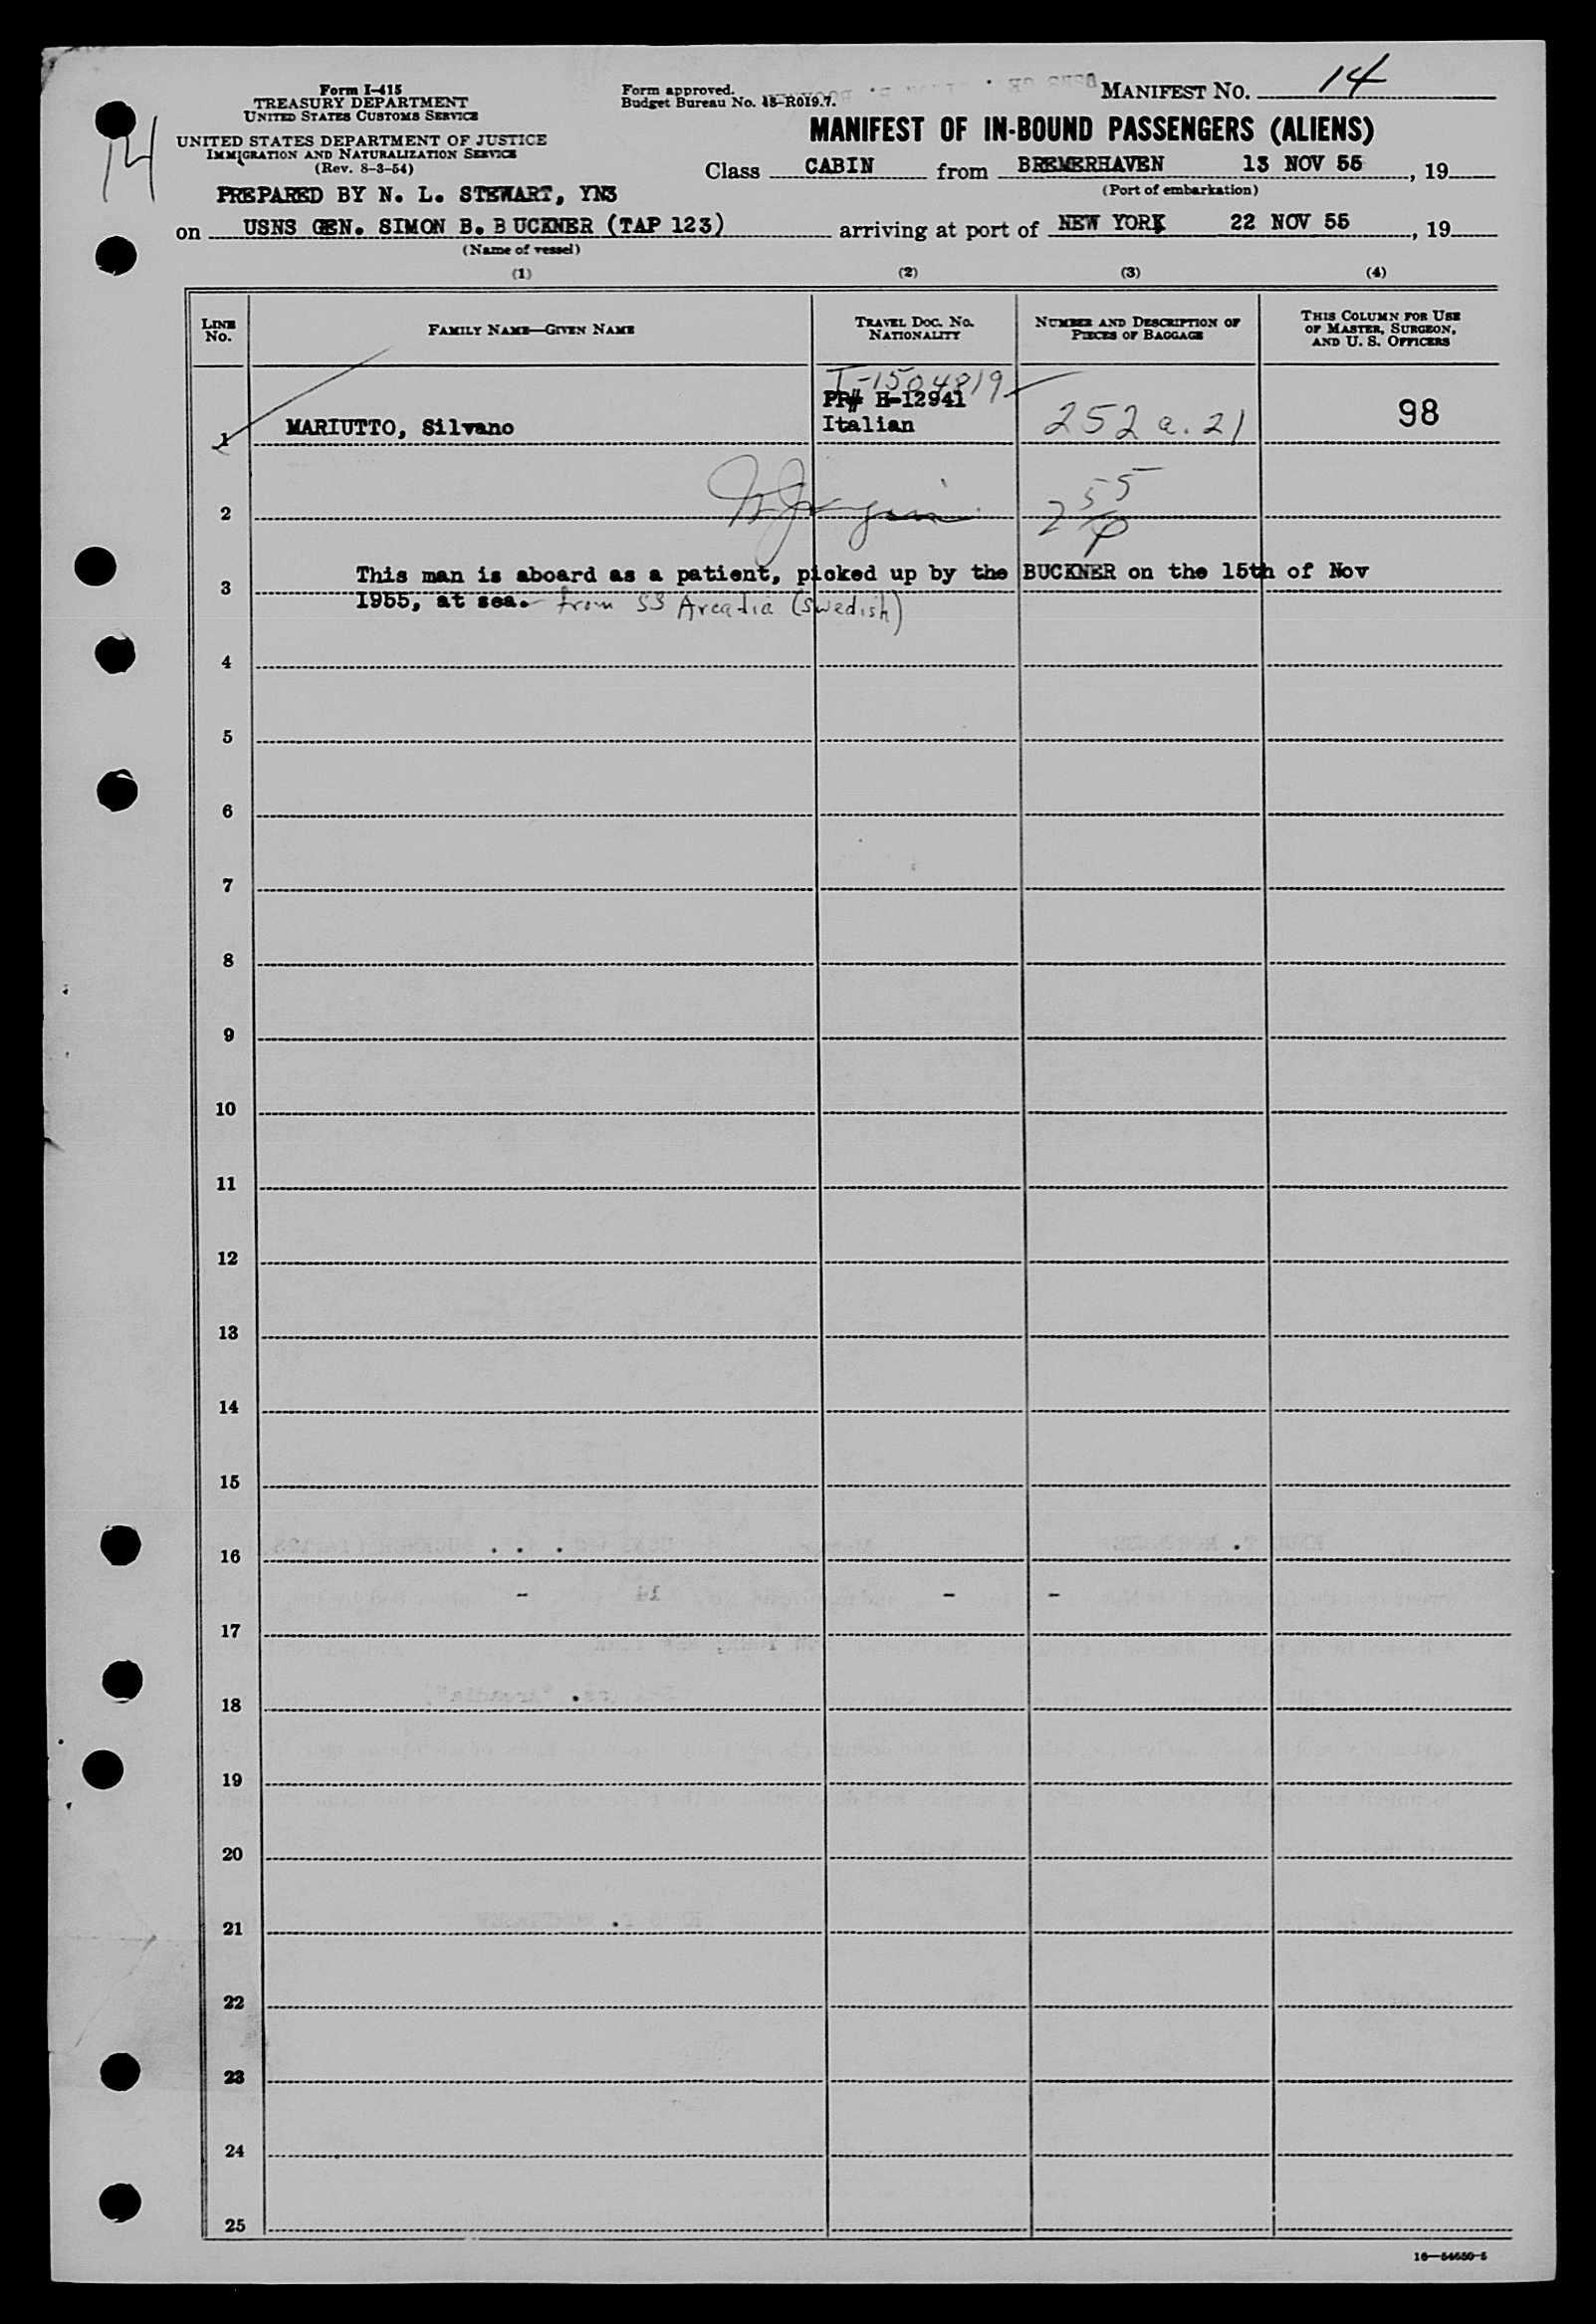 Form I-415
TREASURY DEPARTMENT
UNITED STATES CUSTOMS SERVICE
UNITED STATES DEPARTMENT OF JUSTICE
IMMIGRATION AND NATURALIZATION SERVICE
(Rev. 8-3-54)
PREPARED BY N. L. STEWART, YN3
Form approved.
Budget Bureau No. 43-R019.7.
MANIFEST NO. 14
14
MANIFEST OF IN-BOUND PASSENGERS (ALIENS)
Class CABIN from BREMERHAVEN 13 NOV 55, 19
(Port of embarkation)
on USNS GEN. SIMON B. BUCKNER (TAP 123) arriving at port of NEW YORK 22 NOV 55, 19
(Name of vessel)
(1) (2) (3) (4)
LINE No. FAMILY NAME—GIVEN NAME TRAVEL DOC. NO. NATIONALITY NUMBER AND DESCRIPTION OF PIECES OF BAGGAGE THIS COLUMN FOR USE OF MASTER, SURGEON, AND U. S. OFFICERS
I-1504819
PP# H-12941
1 MARIUTTO, Silvano Italian 252 a. 21 98
2 255
3 This man is aboard as a patient, picked up by the BUCKNER on the 15th of Nov
1955, at sea. from SS Arcadia (Swedish)
4
5
6
7
8
9
10
11
12
13
14
15
16
17
18
19
20
21
22
23
24
25
16—54650-5